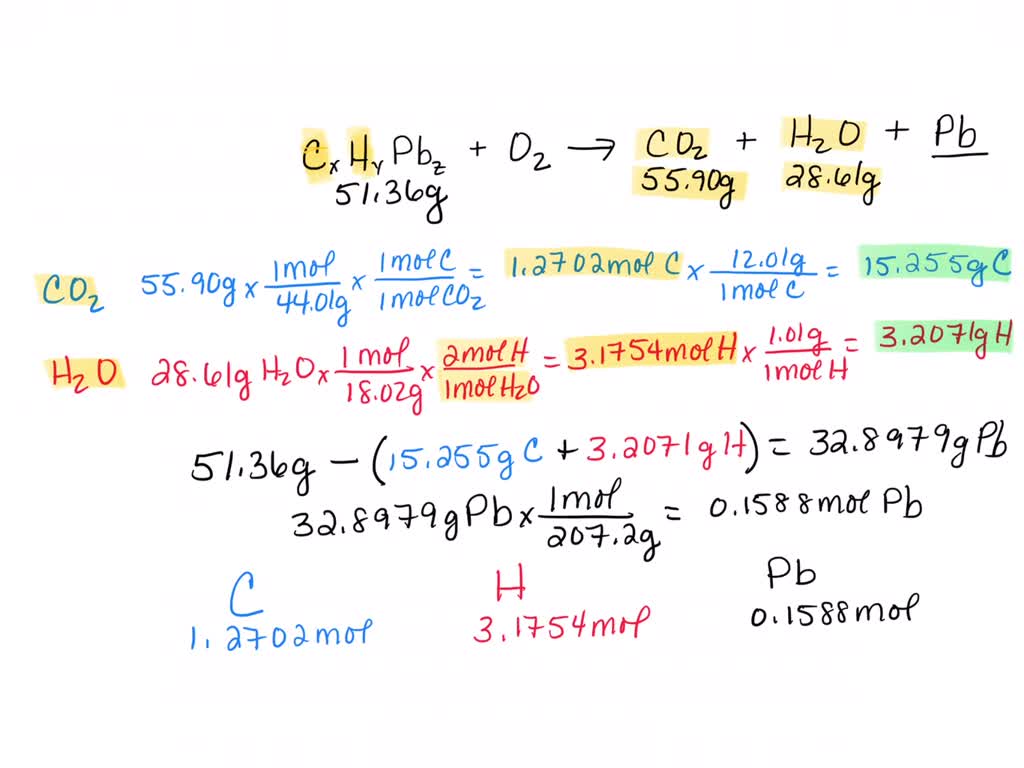 CxHyPbz + O2 → CO2 + H2O + Pb
51.36g 55.90g 28.61g
CO2 55.90g × 1mol/44.01g × 1molC/1molCO2 = 1.2702molC × 12.01g/1molC = 15.255gC
H2O 28.61g H2O × 1mol/18.02g × 2molH/1molH2O = 3.1754molH × 1.01g/1molH = 3.2071gH
51.36g − (15.255gC + 3.2071gH) = 32.8979gPb
32.8979gPb × 1mol/207.2g = 0.1588mol Pb
C H Pb
1.2702mol 3.1754mol 0.1588mol